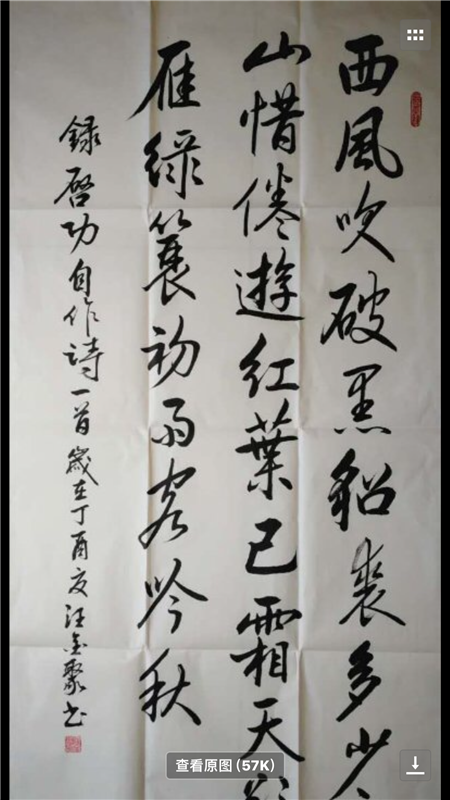 西風吹破黑貂裘多少
山惜倦遊紅葉已霜天
雁綠蓑初雨客吟秋
錄啓功自作詩一首歲在丁酉夏汪金聚书
查看原图 (57K)